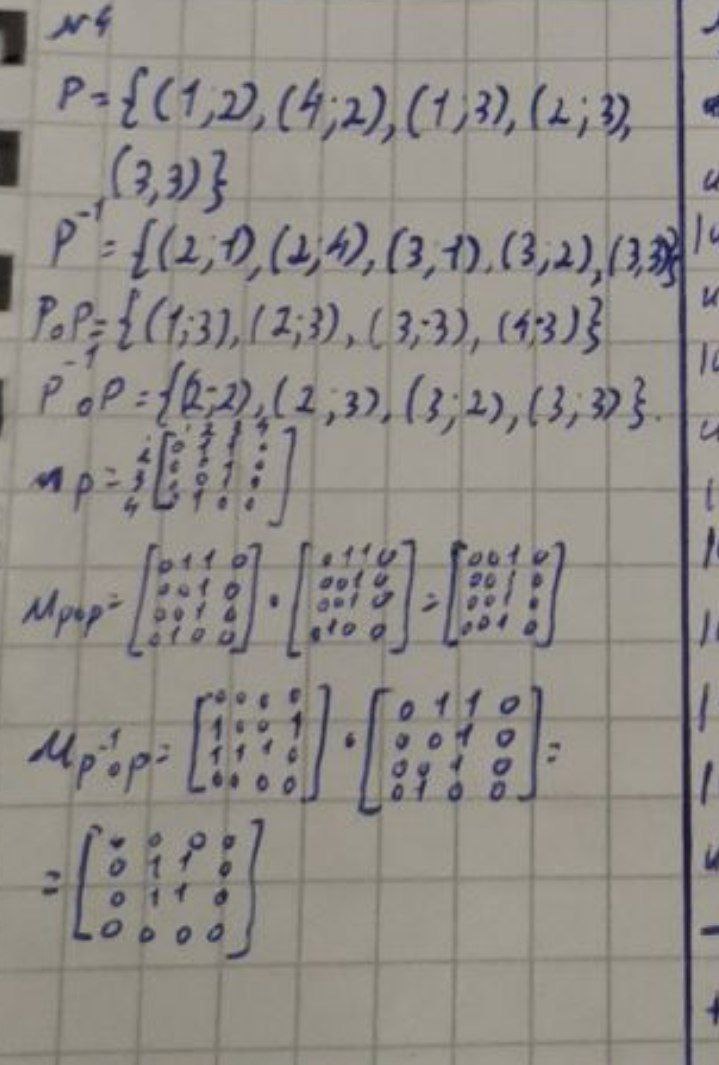 №4
P={(1;2),(4;2),(1;3),(2;3),
(3,3)}
P⁻¹={(2;1),(2;4),(3,1),(3;2),(3,3)}
P∘P={(1;3),(2;3),(3;3),(4;3)}
P⁻¹∘P={(2;2),(2;3),(3;2),(3;3)}.
1 2 3 4
1 [0 1 1 0]
2 [0 0 1 0]
P= 3 [0 0 1 0]
4 [0 1 0 0]
[0 1 1 0] [0 1 1 0] [0 0 1 0]
[0 0 1 0] [0 0 1 0] [0 0 1 0]
M P∘P = [0 0 1 0] · [0 0 1 0] = [0 0 1 0]
[0 1 0 0] [0 1 0 0] [0 0 1 0]
[0 0 0 0] [0 1 1 0]
[1 0 0 1] [0 0 1 0]
M P⁻¹∘P = [1 1 1 0] · [0 0 1 0] =
[0 0 0 0] [0 1 0 0]
[0 0 0 0]
= [0 1 1 0]
[0 1 1 0]
[0 0 0 0]